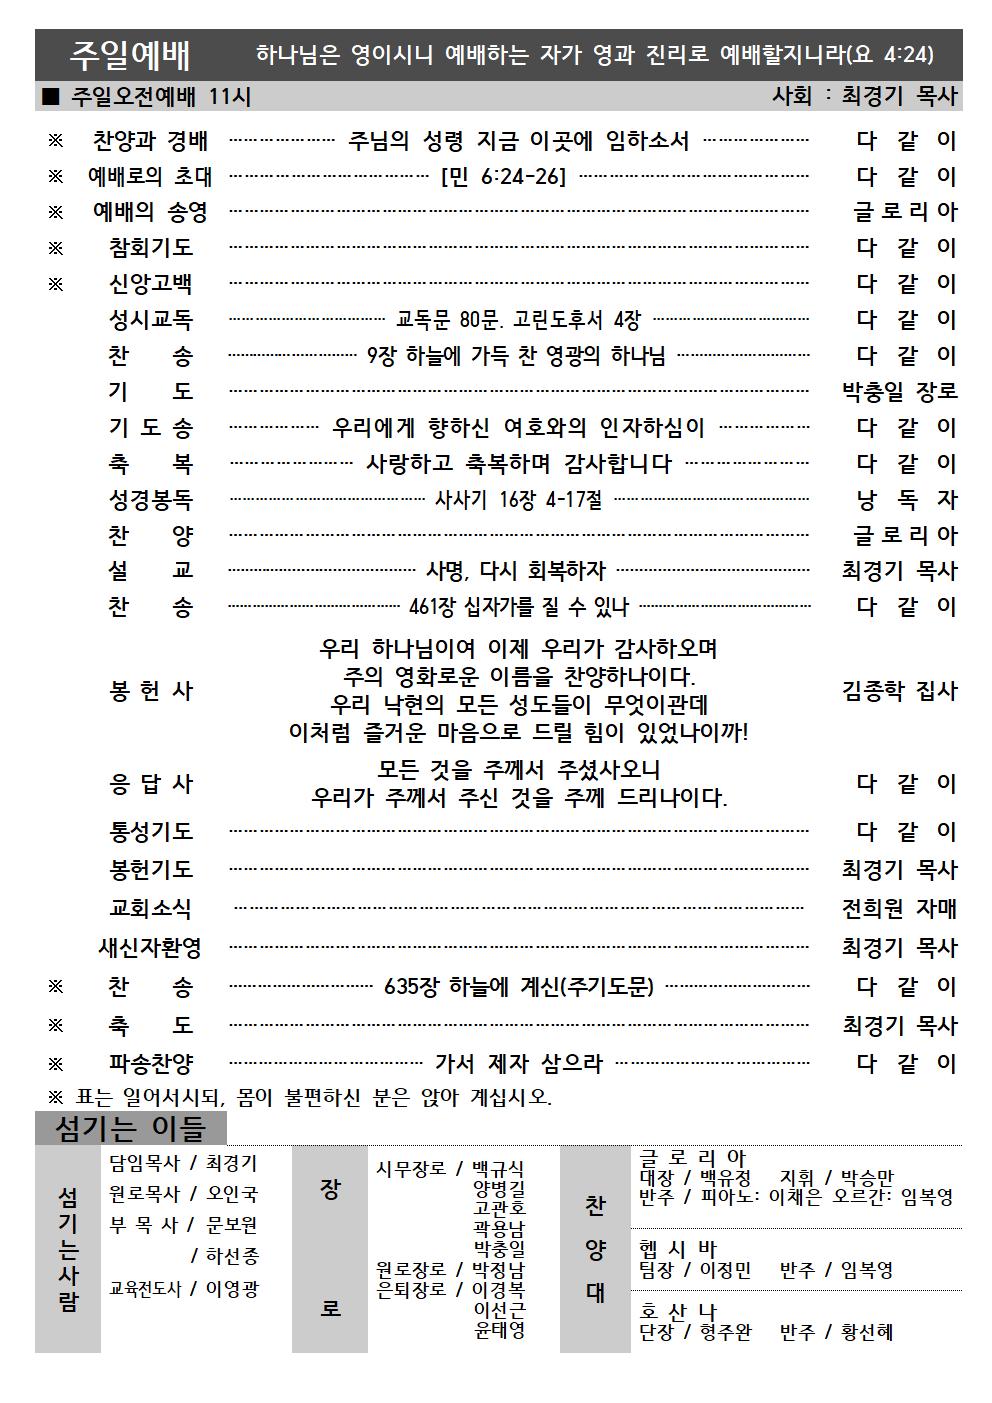 주일예배 하나님은 영이시니 예배하는 자가 영과 진리로 예배할지니라(요 4:24)
■ 주일오전예배 11시 사회 : 최경기 목사
※ 찬양과 경배 ········ 주님의 성령 지금 이곳에 임하소서 ········ 다 같 이
※ 예배로의 초대 ········ [민 6:24-26] ········ 다 같 이
※ 예배의 송영 ········ 글 로 리 아
※ 참회기도 ········ 다 같 이
※ 신앙고백 ········ 다 같 이
성시교독 ········ 교독문 80문. 고린도후서 4장 ········ 다 같 이
찬 송 ········ 9장 하늘에 가득 찬 영광의 하나님 ········ 다 같 이
기 도 ········ 박충일 장로
기 도 송 ········ 우리에게 향하신 여호와의 인자하심이 ········ 다 같 이
축 복 ········ 사랑하고 축복하며 감사합니다 ········ 다 같 이
성경봉독 ········ 사사기 16장 4-17절 ········ 낭 독 자
찬 양 ········ 글 로 리 아
설 교 ········ 사명, 다시 회복하자 ········ 최경기 목사
찬 송 ········ 461장 십자가를 질 수 있나 ········ 다 같 이
우리 하나님이여 이제 우리가 감사하오며
주의 영화로운 이름을 찬양하나이다.
봉 헌 사 김종학 집사
우리 낙현의 모든 성도들이 무엇이관데
이처럼 즐거운 마음으로 드릴 힘이 있었나이까!
모든 것을 주께서 주셨사오니
응 답 사 다 같 이
우리가 주께서 주신 것을 주께 드리나이다.
통성기도 ········ 다 같 이
봉헌기도 ········ 최경기 목사
교회소식 ········ 전희원 자매
새신자환영 ········ 최경기 목사
※ 찬 송 ········ 635장 하늘에 계신(주기도문) ········ 다 같 이
※ 축 도 ········ 최경기 목사
※ 파송찬양 ········ 가서 제자 삼으라 ········ 다 같 이
※ 표는 일어서시되, 몸이 불편하신 분은 앉아 계십시오.
섬기는 이들
섬기는사람
담임목사 / 최경기
원로목사 / 오인국
부 목 사 / 문보원
/ 하선종
교육전도사 / 이영광
장로
시무장로 / 백규식
양병길
고관호
곽용남
박충일
원로장로 / 박정남
은퇴장로 / 이경복
이선근
윤태영
찬양대
글 로 리 아
대장 / 백유정 지휘 / 박승만
반주 / 피아노: 이채은 오르간: 임복영
헵 시 바
팀장 / 이정민 반주 / 임복영
호 산 나
단장 / 형주완 반주 / 황선혜